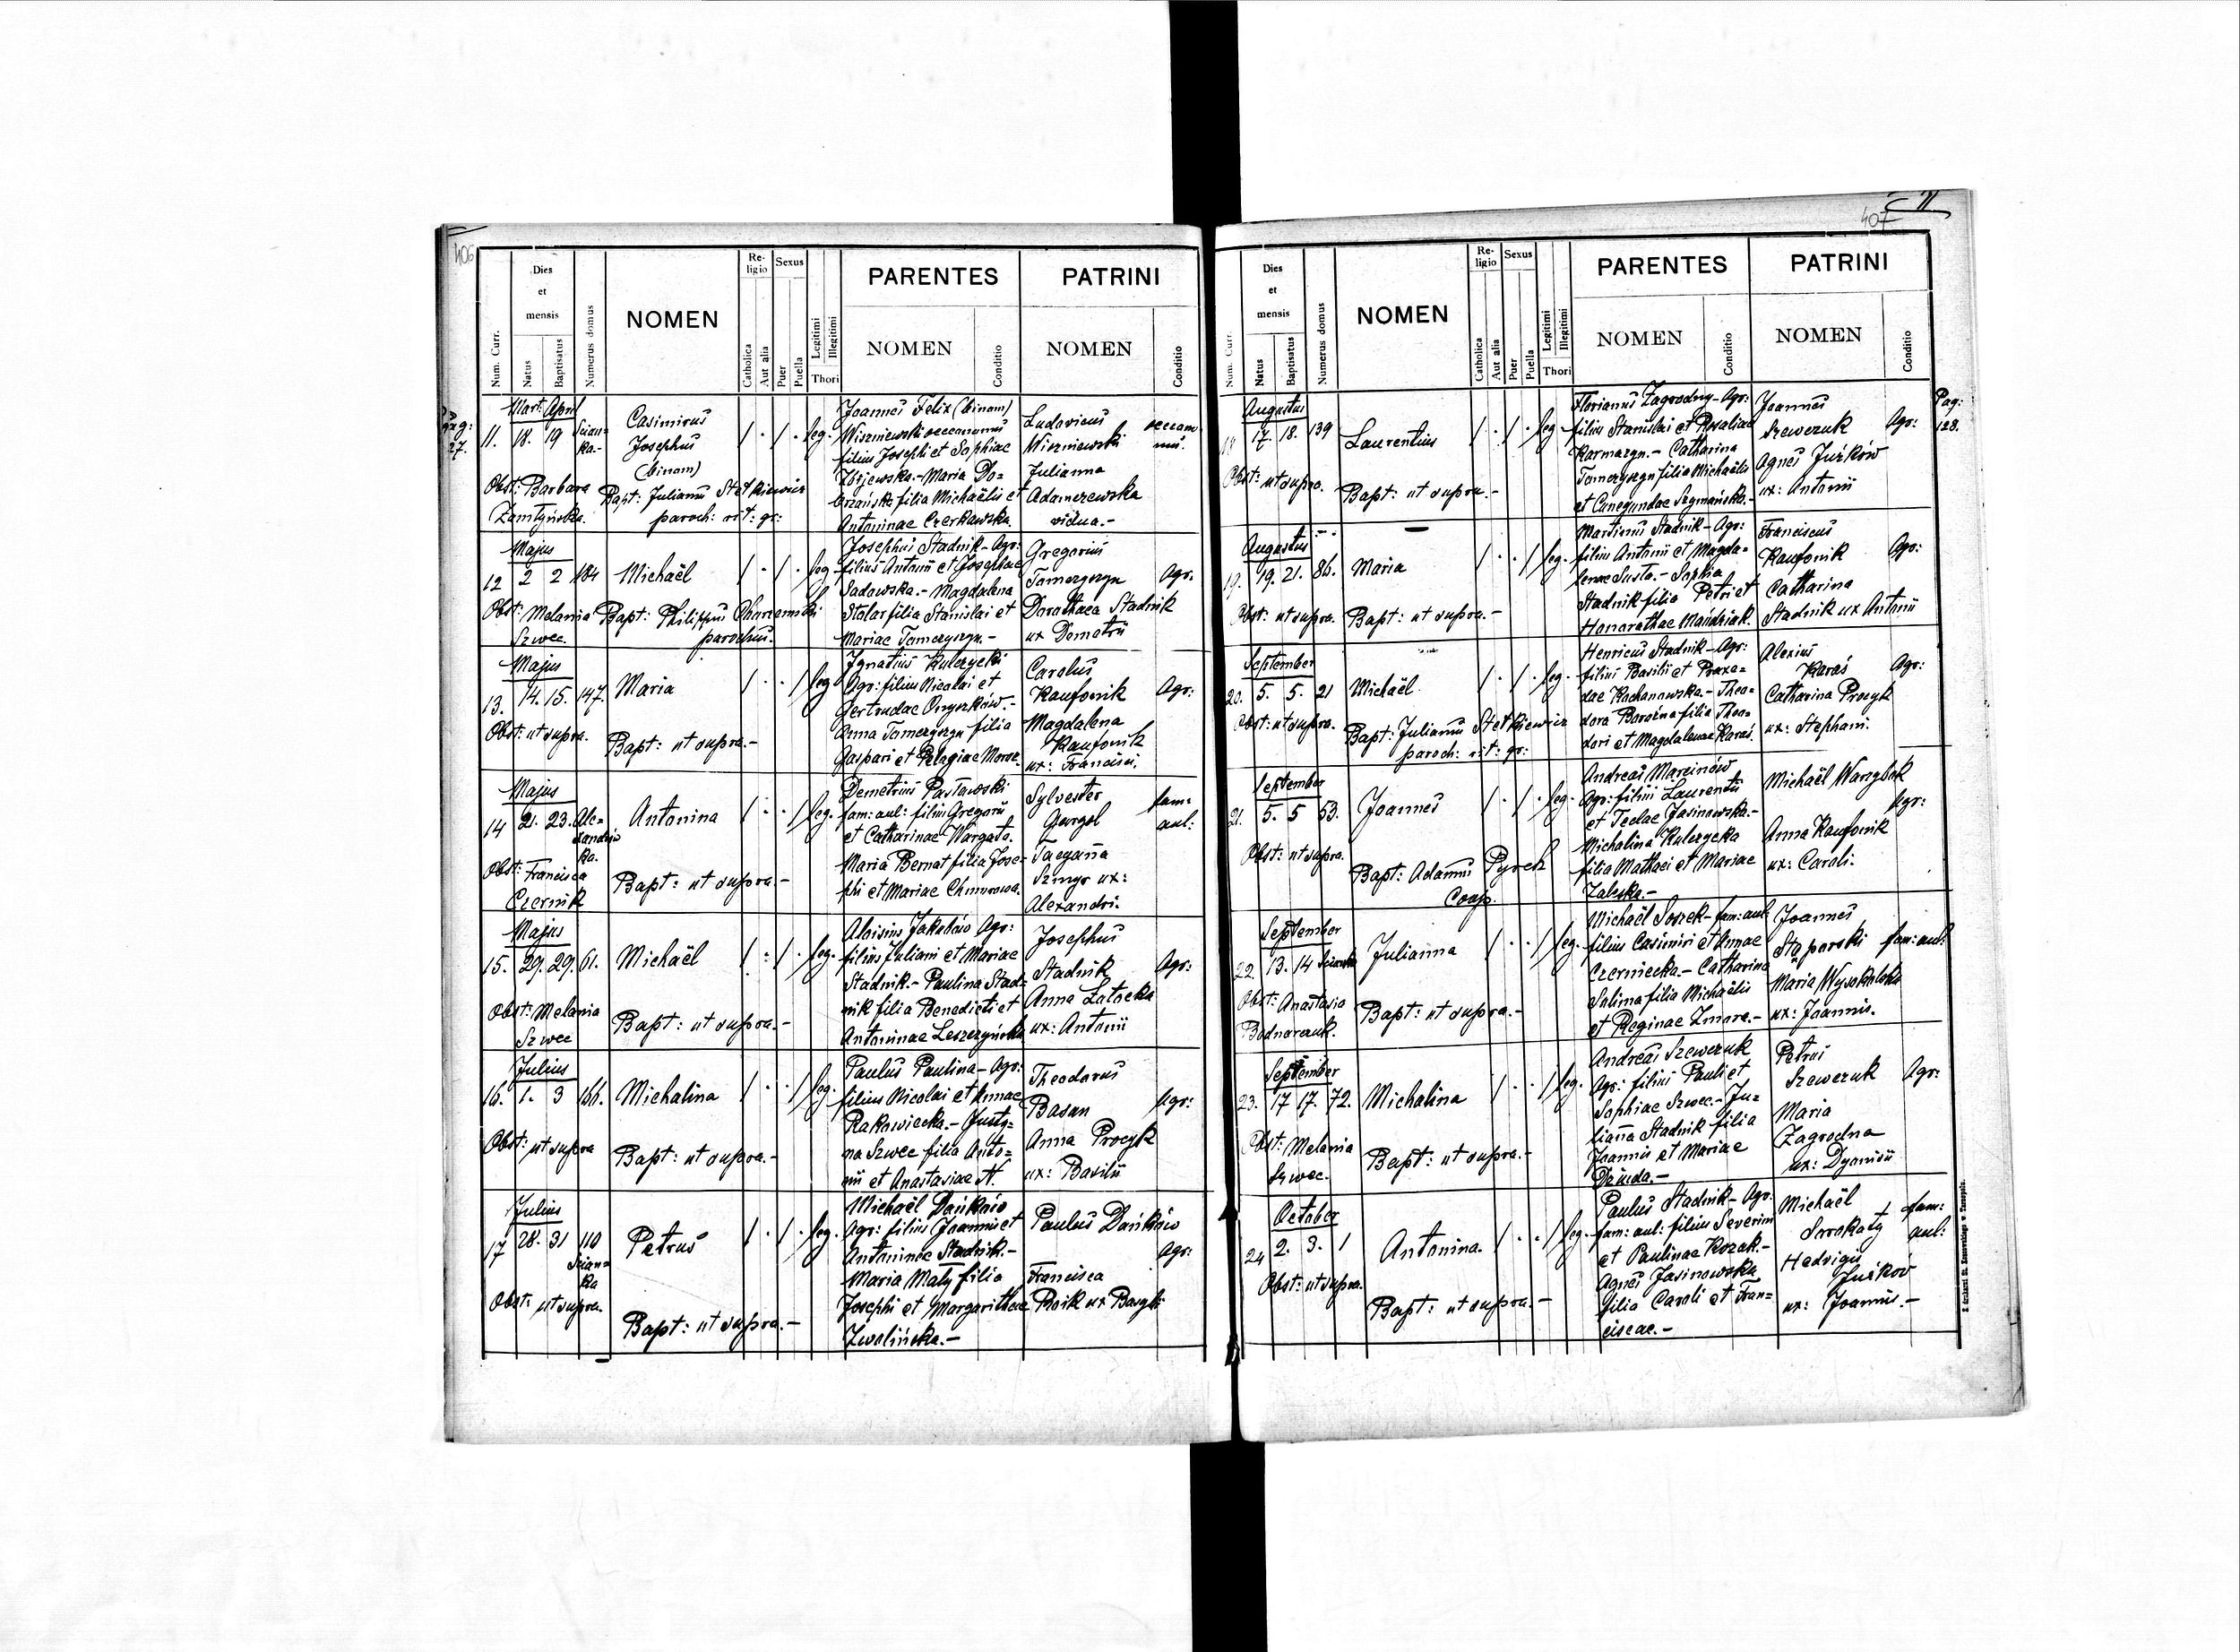 406
Num. Curr.
Dies et mensis
Natus
Baptisatus
Numerus domus
NOMEN
Religio
Catholica
Aut alia
Sexus
Puer
Puella
Legitimi
Illegitimi
Thori
PARENTES
NOMEN
Conditio
PATRINI
NOMEN
Conditio
Mart: April
11. 18. 19
Casimirus
Josephus
(binom)
/ . / . leg.
Joannes Felix (binom)
Wiszniewski oeconomus
filius Josephi et Sophiae
Maria Do=
filia Michaëlis et
Antoninae Czerkawska.
Ludovicus
Wiszniewski
Julianna
Adamczewska
vidua.-
Obst: Barbara
Bapt: Julianus Stetkiewicz
paroch: rit: gr:
Majus
12 2 2 184 Michaël / . / . leg.
Josephus Stadnik - Agr:
filius Antonii et Josephae
Sadowska. - Magdalena
Stolar filia Stanislai et
Mariae Tomczyszyn -
Gregorius
Tomczyszyn Agr.
Dorothaea Stadnik
ux Demetrii
Obst: Melania
Szwec.
Bapt: Philippus
parochus.
Majus
13. 14. 15. 147. Maria / . . / leg.
Ignatius Kulczycki
Agr: filius Nicolai et
Gertrudae Onyszków. -
Anna Tomczyszyn filia
Gaspari et Pelagiae
Carolus
Kaufonik Agr:
Magdalena
Kaufonik
ux: Francisci.
Obst: ut supra.
Bapt: ut supra.-
Majus
14 21. 23. Alexandrówka. Antonina / . . / leg.
Demetrius Pasławski
fam: aul: filius Gregorii
et Catharinae
Maria Bernat filia Jose-
phi et Mariae
Sylvester fam:
Gurgol aul:
Tacyanna
Szmyr ux:
Alexandri.
Obst: Francisca
Czernik
Bapt: ut supra.-
Majus
15. 29. 29. 61. Michaël / . / . leg.
Aloisius Jakubów Agr:
filius Juliani et Mariae
Stadnik. - Paulina Stad=
nik filia Benedicti et
Antoninae Leszczyńska
Josephus
Stadnik Agr:
Anna Zatocka
ux: Antonii
Obst: Melania
Szwec
Bapt: ut supra.-
Julius
16. 1. 3 166. Michalina / . . / leg.
Paulus Paulina - Agr:
filius Nicolai et Annae
Rakowiecka. - Justy=
na Szwec filia Anto=
nii et Anastasiae N.
Theodorus
Basan Agr:
Anna Procyk
ux: Basilii
Obst: ut supra
Bapt: ut supra.-
Julius
17 28. 31 110 Petrus / . / . leg.
Michaël Dańków
Agr: filius Joannis et
Antoninae Stadnik. -
Maria Mały filia
Josephi et Margarithae
Zwalińska. -
Paulus Dańków
Agr:
Francisca
ux
Obst: ut supra.
Bapt: ut supra.-
407
Num. Curr.
Dies et mensis
Natus
Baptisatus
Numerus domus
NOMEN
Religio
Catholica
Aut alia
Sexus
Puer
Puella
Legitimi
Illegitimi
Thori
PARENTES
NOMEN
Conditio
PATRINI
NOMEN
Conditio
Pag:
128.
Augustus
18 17. 18. 139 Laurentius / . / . leg
Florianus Zagrodny - Agr:
filius Stanislai et Rosaliae
Karmazyn. - Catharina
Tomczyszyn filia Michaëlis
et Cunegundae Szymańska. -
Joannes
Szewczuk Agr:
Agnes Juśków
ux: Antonii
Obst: ut supra.
Bapt: ut supra.-
Augustus
19. 19. 21. 86. Maria / . . / leg.
Martinus Stadnik - Agr:
filius Antonii et Magda=
lenae Susto. - Sophia
Stadnik filia Petri et
Honorathae Mandziak.
Franciscus
Kaufonik Agr:
Catharina
Stadnik ux Antonii
Obst: ut supra.
Bapt: ut supra.-
September
20. 5. 5. 21 Michaël / . / . leg.
Henricus Stadnik - Agr:
filius Basilii et Praxe=
dae Kochanowska. - Theo=
dora filia Theo=
dori et Magdalenae Karaś.
Alexius
Karaś Agr:
Catharina Procyk
ux: Stephani.
Obst: ut supra.
Bapt: Julianus Stetkiewicz
paroch: rit: gr:
September
21. 5. 5 53. Joannes / . / . leg.
Andreas Marcinów
Agr: filius Laurentii
et Teclae Jasinowska. -
Michalina Kulczycka
filia Mathaei et Mariae
Zaleska. -
Michaël Warzybok
Agr:
Anna Kaufonik
ux: Caroli.
Obst: ut supra.
Bapt: Adamus Pyrek
Coop.
September
22. 13. 14 Julianna / . . / leg.
Michaël Soszek - fam: aul:
filius Casimiri et Annae
Czerniecka. - Catharina
Salima filia Michaëlis
et Reginae Zmora. -
Joannes
fam: aul:
Maria
ux: Joannis.
Obst: Anastasia
Bodnarczuk.
Bapt: ut supra.-
September
23. 17 17. 72. Michalina / . . / leg.
Andreas Szewczuk
Agr: filius Pauli et
Sophiae Szwec. - Ju=
lianna Stadnik filia
Joannis et Mariae
Petrus
Szewczuk Agr:
Maria
Zagrodna
ux: Dyonisii
Obst: Melania
Szwec.
Bapt: ut supra.-
October
24 2. 3. 1 Antonina. / . . / leg.
Paulus Stadnik - Agr.
fam: aul: filius Severini
et Paulinae Kozak. -
Agnes Jasinowska
filia Caroli et Fran=
ciscae. -
Michaël fam:
Srokaty aul:
Hedvigis
Juśków
ux: Joannis. -
Obst: ut supra.
Bapt: ut supra.-